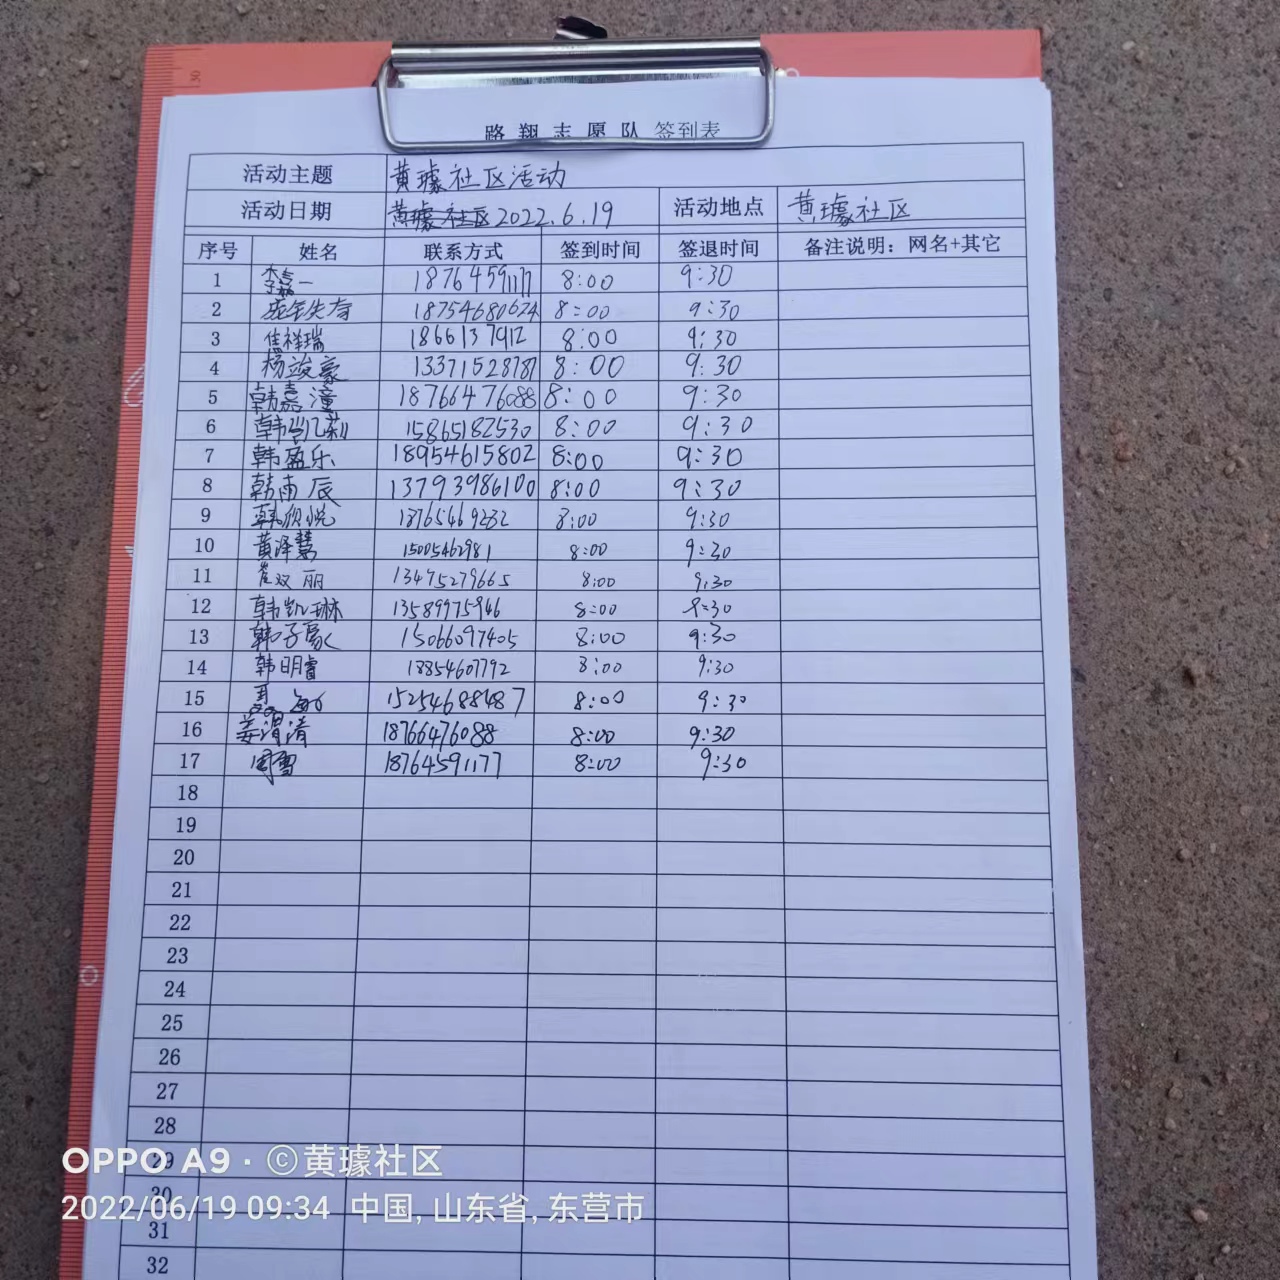 路翔志愿队 签到表
活动主题 黄璩社区活动
活动日期 黄璩社区2022.6.19 活动地点 黄璩社区
序号 姓名 联系方式 签到时间 签退时间 备注说明：网名+其它
1 18764591177 8:00 9:30
2 18754680624 8:00 9:30
3 焦祥瑞 1866137912 8:00 9:30
4 杨竣豪 13371528787 8:00 9:30
5 韩嘉潼 18766476088 8:00 9:30
6 15865182530 8:00 9:30
7 韩盈乐 18954615802 8:00 9:30
8 韩雨辰 13793986100 8:00 9:30
9 韩欣悦 18765469232 8:00 9:30
10 黄泽慧 15005462981 8:00 9:30
11 崔双丽 13475279665 8:00 9:30
12 韩凯琳 13589975946 8:00 9:30
13 韩子豪 15066097405 8:00 9:30
14 韩明睿 18854607792 8:00 9:30
15 8:00 9:30
16 姜渭清 18766476088 8:00 9:30
17 周雪 18764591177 8:00 9:30
18
19
20
21
22
23
24
25
26
27
28
29
30
31
32
OPPO A9 · ©黄璩社区
2022/06/19 09:34 中国, 山东省, 东营市